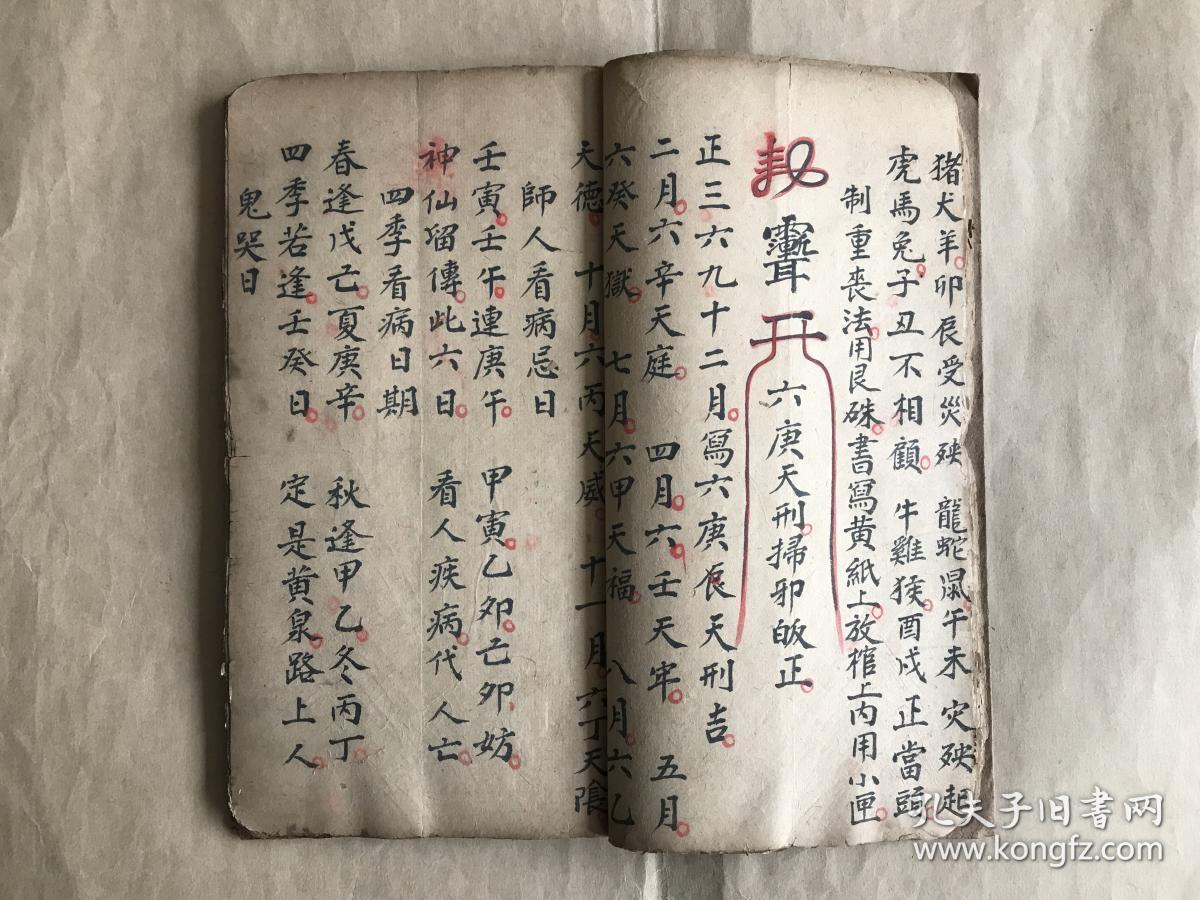 猪犬羊卯辰受災殃 龍蛇鼠午未灾殃起
虎馬兔子丑不相顧 牛雞猴酉戌正當頭
制重喪法用艮硃書寫黄紙上放棺上内用小匣
六庚天刑掃邪皈正
正三六九十二月寫六庚辰天刑吉
二月六辛天庭 四月六壬天牢 五月
六癸天獄 七月六甲天福 八月六乙
天德 十月六丙天威 十一月六丁天陰
師人看病忌日
壬寅壬午連庚午 甲寅乙卯己卯妨
神仙留傳此六日 看人疾病代人亡
四季看病日期
春逢戊己夏庚辛 秋逢甲乙冬丙丁
四季若逢壬癸日 定是黄泉路上人
鬼哭日
孔夫子旧书网
www.kongfz.com